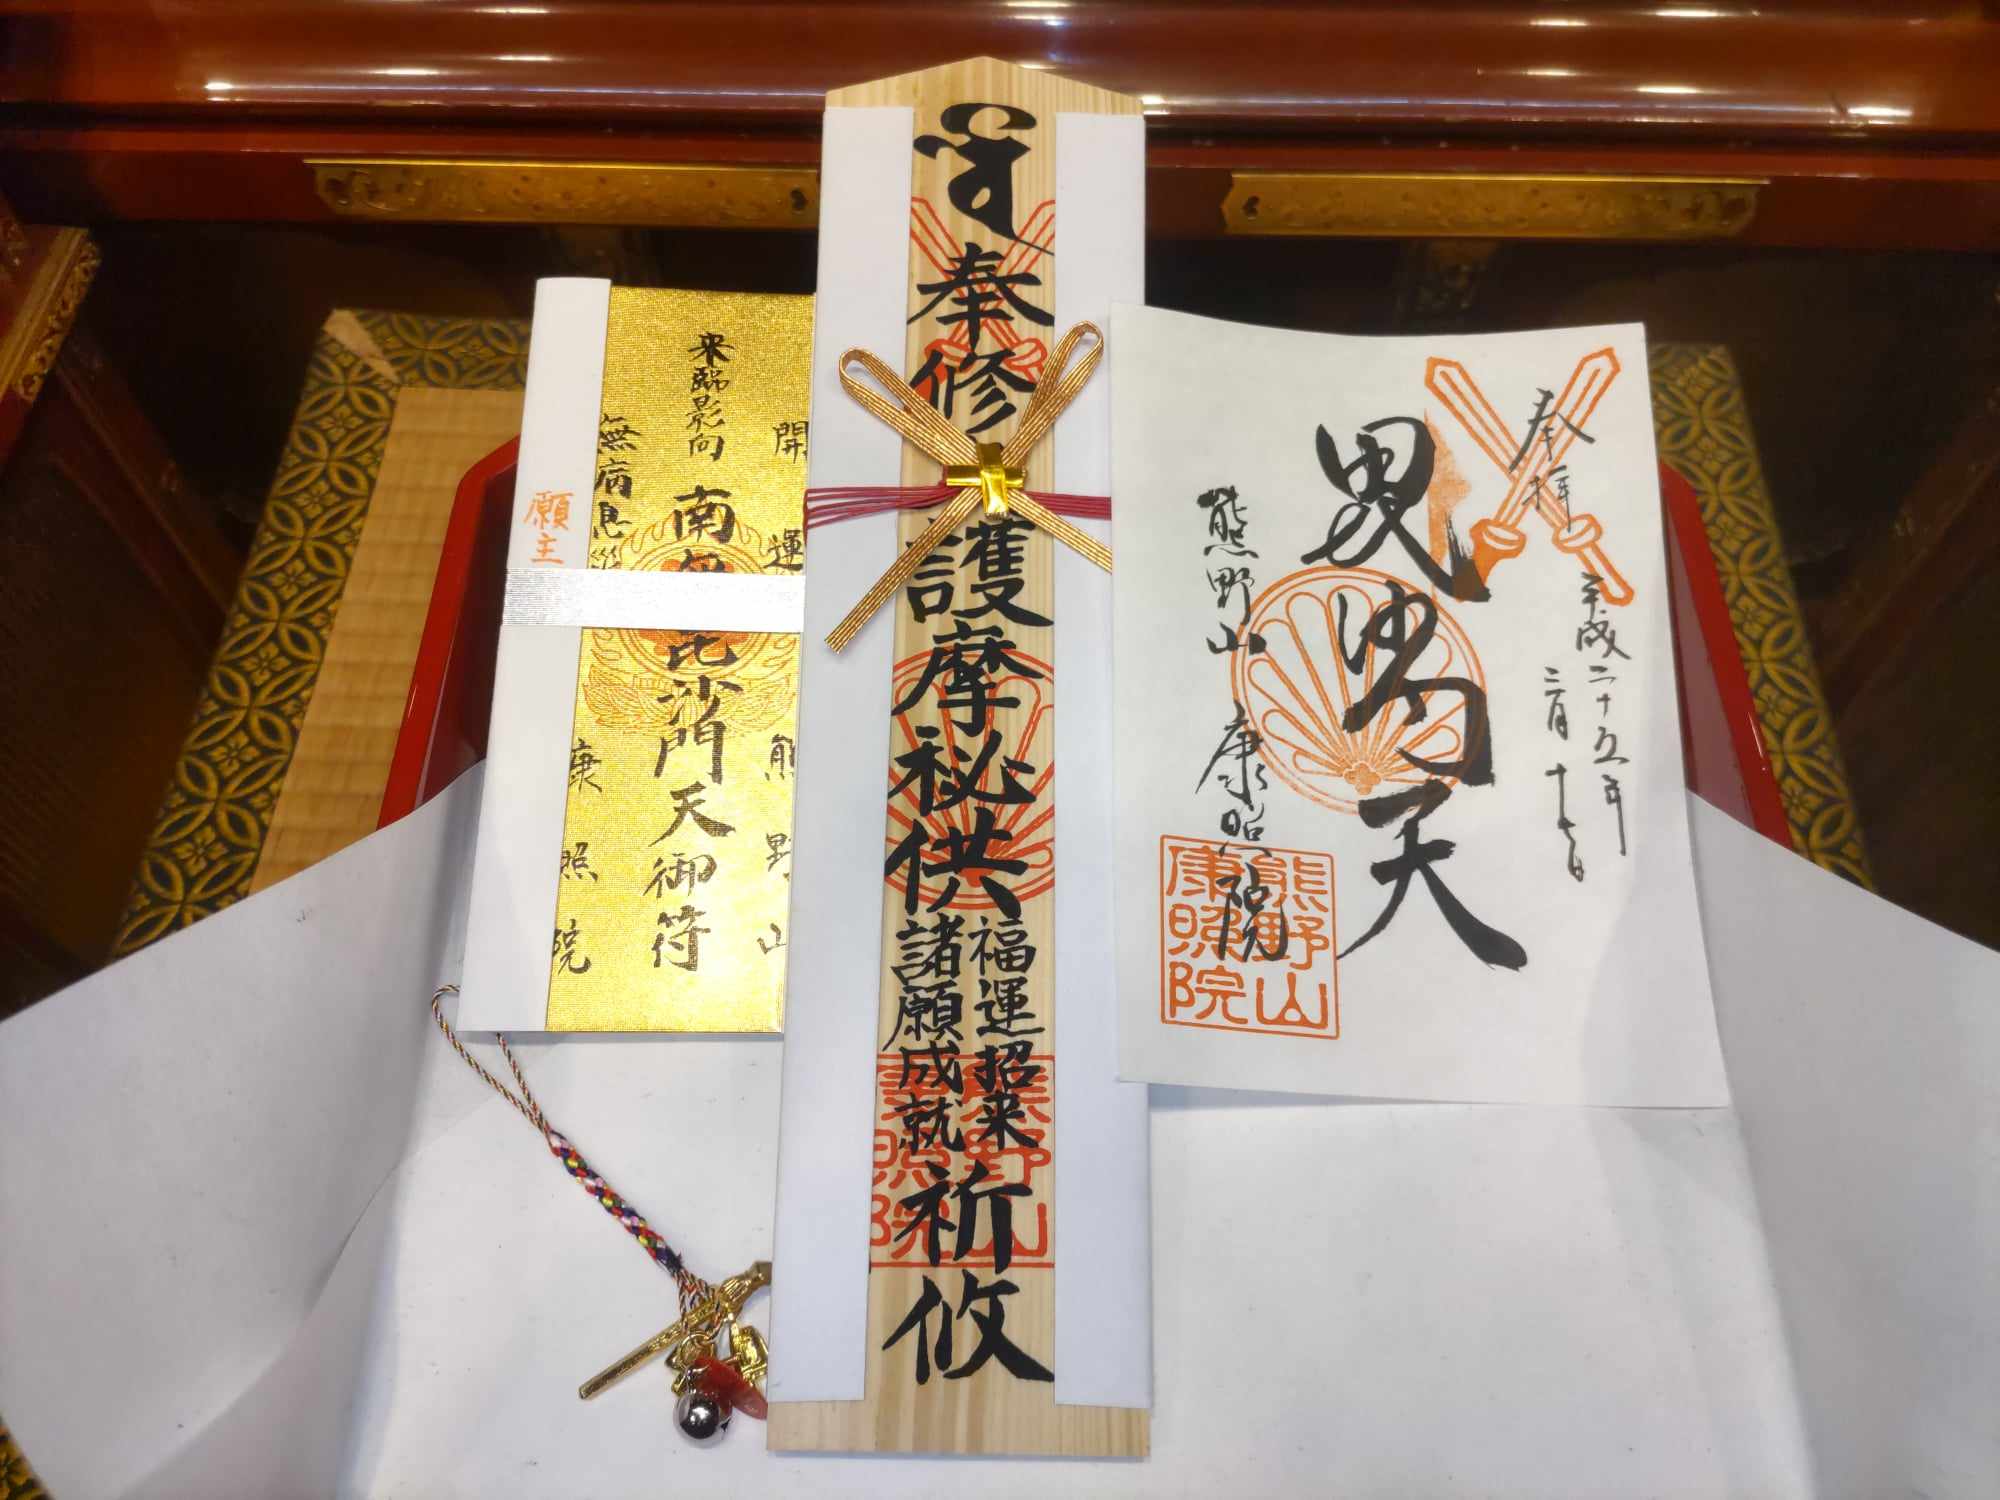 奉拝
平成二十五年
二月十七日
毘沙門天
熊野山 康照院
熊野山
康照院
奉修護摩秘供
福運招来
諸願成就
祈攸
熊野山
照院
開運
熊野山
来臨影向
南無毘沙門天御符
無病息災
康照院
願主